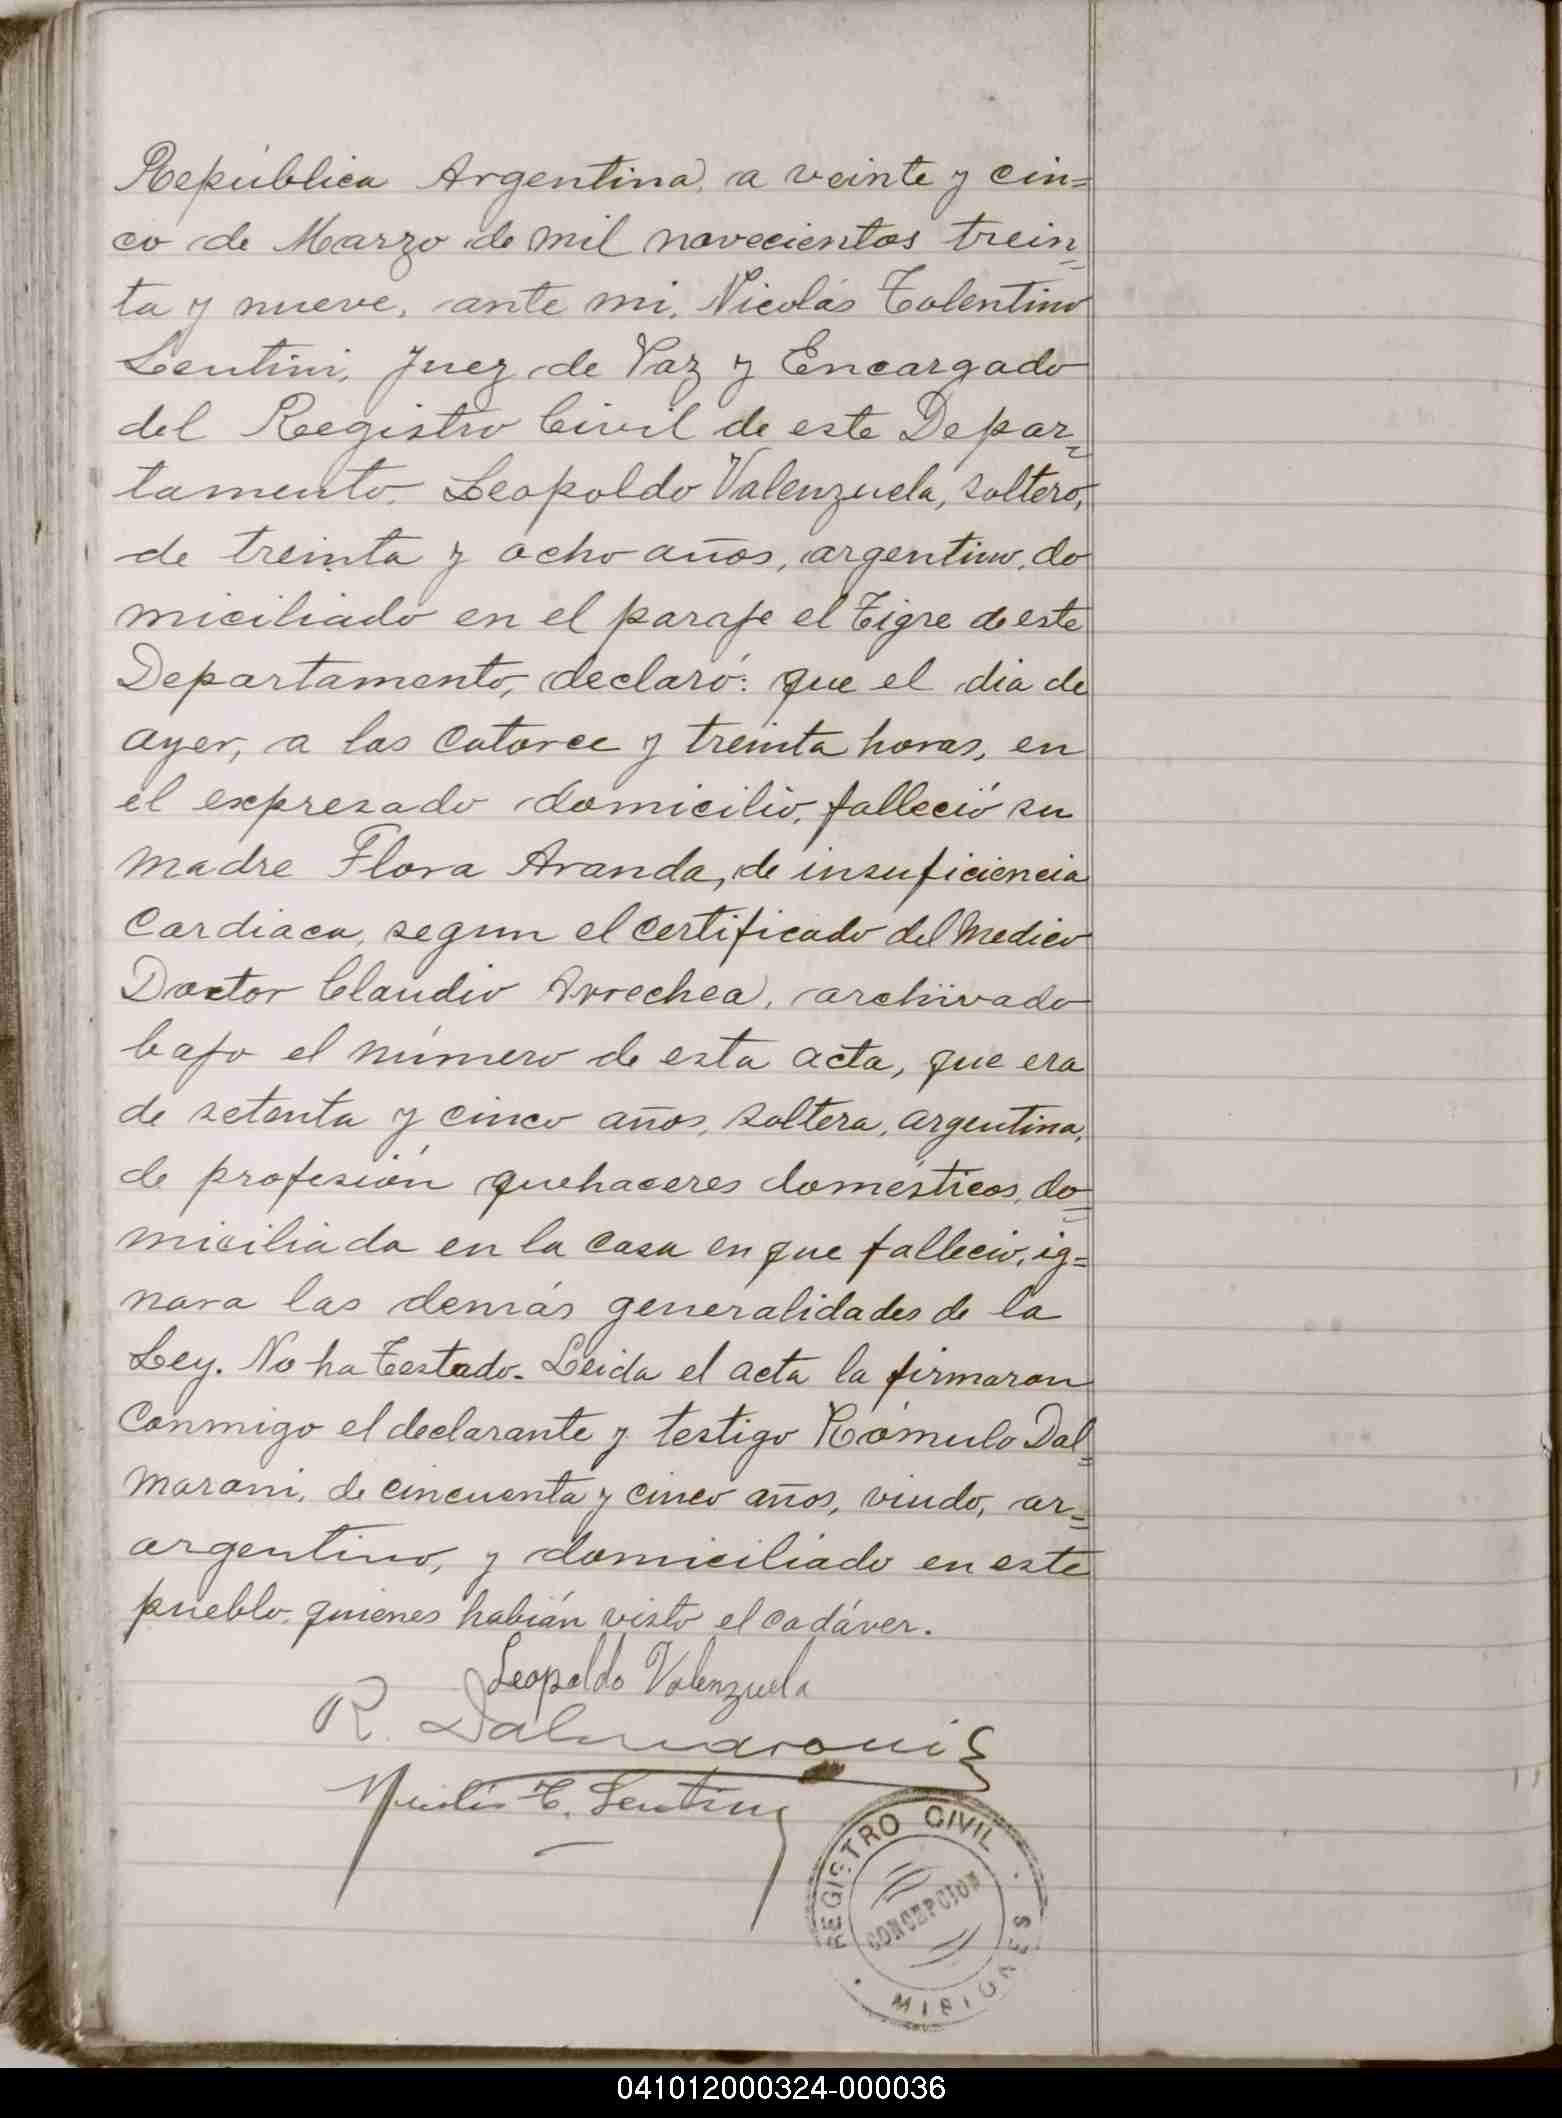 República Argentina, a veinte y cin=
co de Marzo de mil novecientos trein=
ta y nueve, ante mi, Nicolás Tolentino
Lentini, Juez de Paz y Encargado
del Registro Civil de este Depar=
tamento. Leopoldo Valenzuela, soltero,
de treinta y ocho años, argentino, do
miciliado en el paraje el Tigre de este
Departamento, declaró: que el dia de
ayer, a las catorce y treinta horas, en
el expresado domicilio, falleció su
madre Flora Aranda, de insuficiencia
cardiaca, segun el certificado del medico
Doctor Claudio Arrechea, archivado
bajo el número de esta acta, que era
de setenta y cinco años, soltera, argentina,
de profesión quehaceres domésticos, do=
miciliada en la casa en que falleció, ig=
nora las demás generalidades de la
Ley. No ha testado. Leida el acta la firmaron
conmigo el declarante y testigo Rómulo Dal=
maroni, de cincuenta y cinco años, viudo, ar=
argentino, y domiciliado en este
pueblo, quienes habián visto el cadáver.
Leopoldo Valenzuela
R. Dalmaroni
Nicolás T. Lentini
REGISTRO CIVIL
CONCEPCION
MISIONES
041012000324-000036